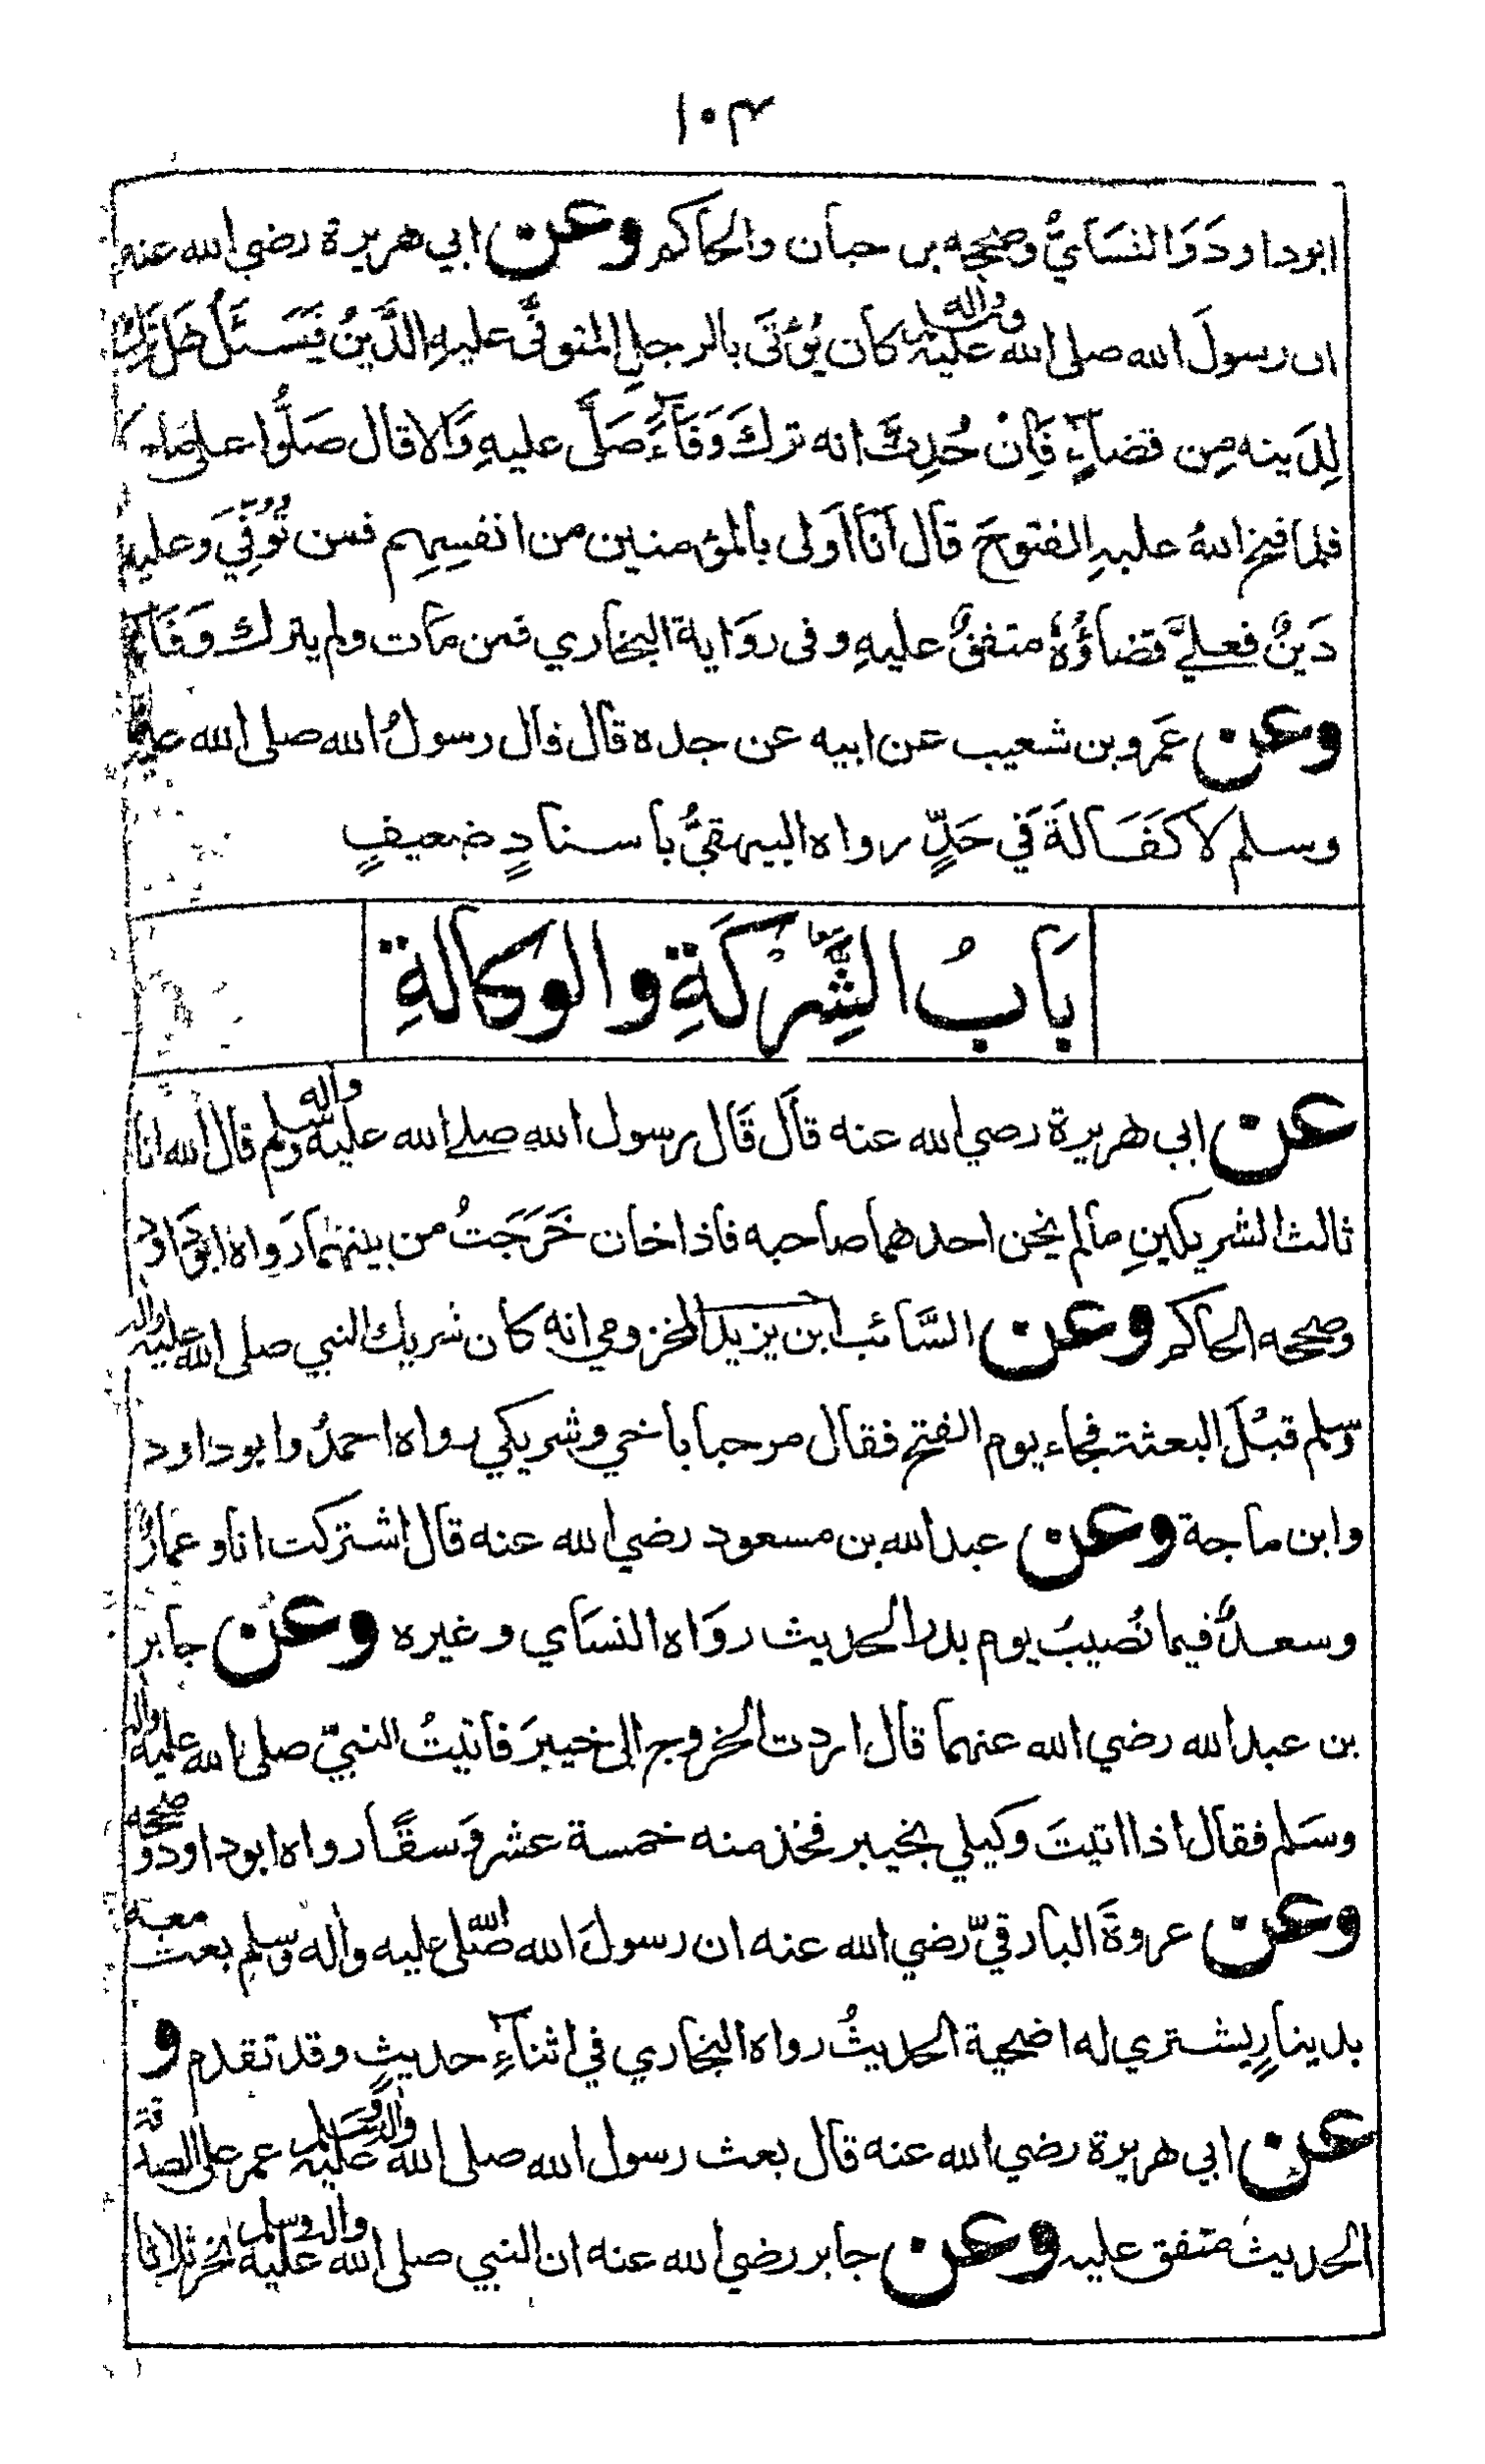 ١٠٣
ابوداودَ وَالنسَايُّ وصححه بن حبان والحاكم وعن ابي هريرة رضي الله عنه
ان رسولَ الله صلى الله عليه واله وسلم كان يُؤتَى بالرجلِ المتوفَّى عليهِ الدَّينُ فَيَسئَلُ هَل تَرَكَ
لِدَينه مِن قضاءٍ فَاِنْ حُدِثَ انه تركَ وَفَآءً صَلَّى عليهِ وَالا قال صَلُّوا على صاحبكم
فلما فتح اللهُ عليهِ الفتوحَ قال اَنَا اَولى بالمؤمنين من انفسِهِم فمن تُوُفِّيَ وعليهِ
دَينٌ فعليَّ قضاؤُهُ متفقٌ عليهِ وفى روَاية البخاري فمن مَات ولم يترك وَفَاءً
وعن عَمرو بن شعيب عن ابيه عن جده قال قال رسولُ الله صلى الله عليه
وسلم لا كَفَالةَ في حَدٍّ رواه البيهقيُّ باسنادٍ ضعيفٍ
بَابُ الشِّرْكَةِ والوَكالةِ
عن ابي هريرة رضي الله عنه قاَل قَال رسول الله صلى الله عليه واله وسلم قال الله انا
ثالث الشريكينِ مالم يخن احدهما صاحبه فاذا خان خَرَجَتُ من بينهما رَواه ابودَاود
وصححه الحاكم وعن السَّائب ابن يزيد المخزومي انه كان شريك النبي صلى الله عليه واله
وسلم قبْلَ البعثة فجاء يوم الفتح فقال مرحبا باخي وشريكي رواه احمدُ وابوداود
وابن ماجة وعن عبدالله بن مسعود رضي الله عنه قال اشتركت انا وعمارٌ
وسعدٌ فيما نُصيبُ يوم بدر الحديث روَاه النسَاي وغيره وعن جابر
بن عبدالله رضي الله عنهما قال اردت الخروج الى خيبرَ فاتيتُ النبيّ صلى الله عليه واله
وسَلم فقال اذا اتيتَ وكيلي بخيبر فخذ منه خمسة عشر وَسقًا رواه ابوداود وصححه
وعن عروةَ البارقيّ رضي الله عنه ان رسولَ الله صلى الله عليه واله وسلم بعث معه
بدينارٍ يشتري له اضحية الحديثُ رواه البخاري في اثناءِ حديثٍ وقد تقدم و
عن ابي هريرة رضي الله عنه قال بعث رسول الله صلى الله عليه واله وسلم عمر على الصدقة
الحديث متفق عليه وعن جابر رضي الله عنه ان النبي صلى الله عليه واله وسلم نحر ثلاثا